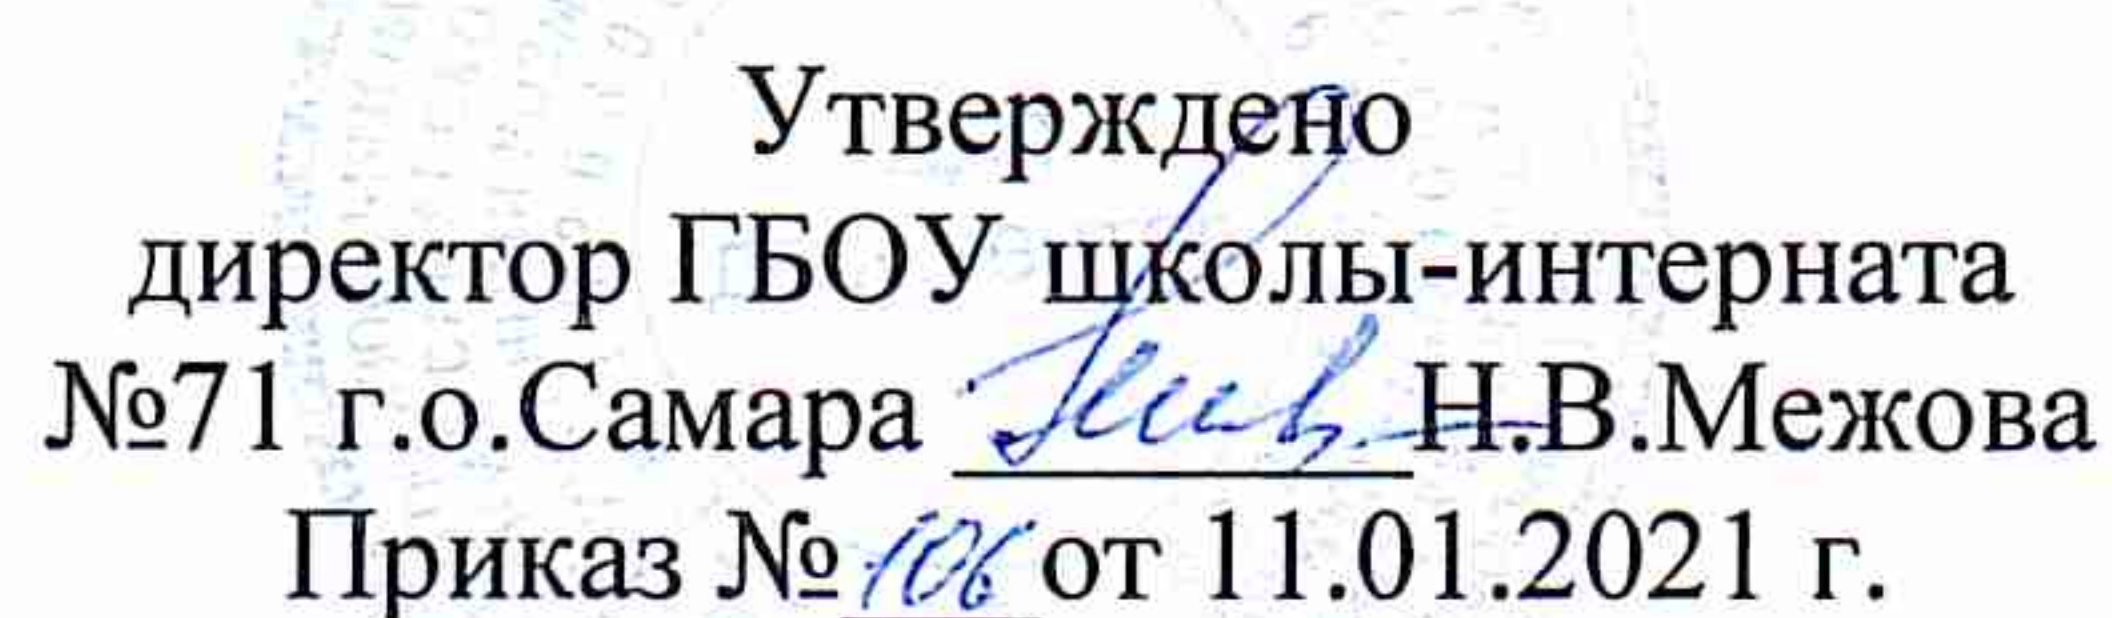 Утверждено
директор ГБОУ школы-интерната
№71 г.о.Самара Н.В.Межова
Приказ № 106 от 11.01.2021 г.